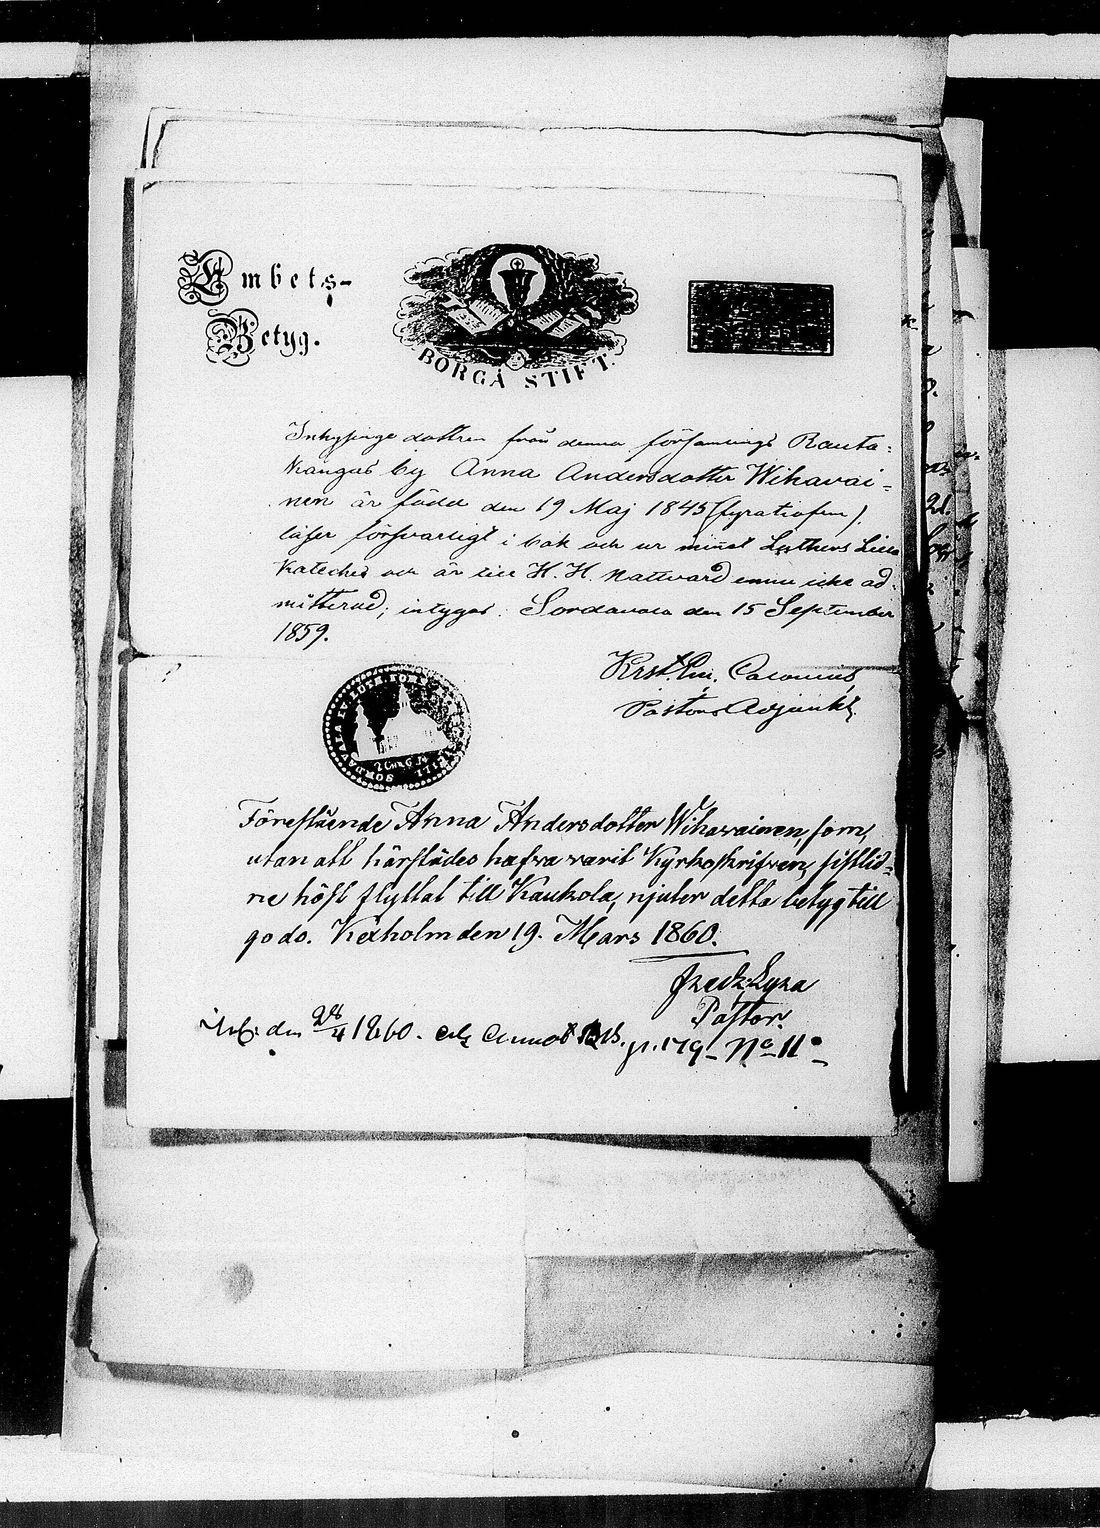 Embets-
Betyg.
BORGÅ STIFT.
Inhysinge dottren från denna församlings Rauta-
kangas by Anna Andersdotter Wihavai-
nen är född den 19 Maj 1845 (fyratiofem),
läser försvarligt i bok och ur minnet Luthers Lilla
Kateches och är till H. H. Nattvard ennu icke ad-
mitterad; intygas. Sordavala den 15 September
1859.
Calonius,
Pastors Adjunkt.
SORDAVALA
Föreståënde Anna Andersdotter Wihavainen, som,
utan att härstädes hafva varit Kyrkoskrifven, sistlid-
ne höst flyttat till Kaukola, njuter detta betyg till
godo. Kexholm den 19. Mars 1860.
Fredr. Lyra
Pastor.
den 28/4 1860. p. 179 - No 11.